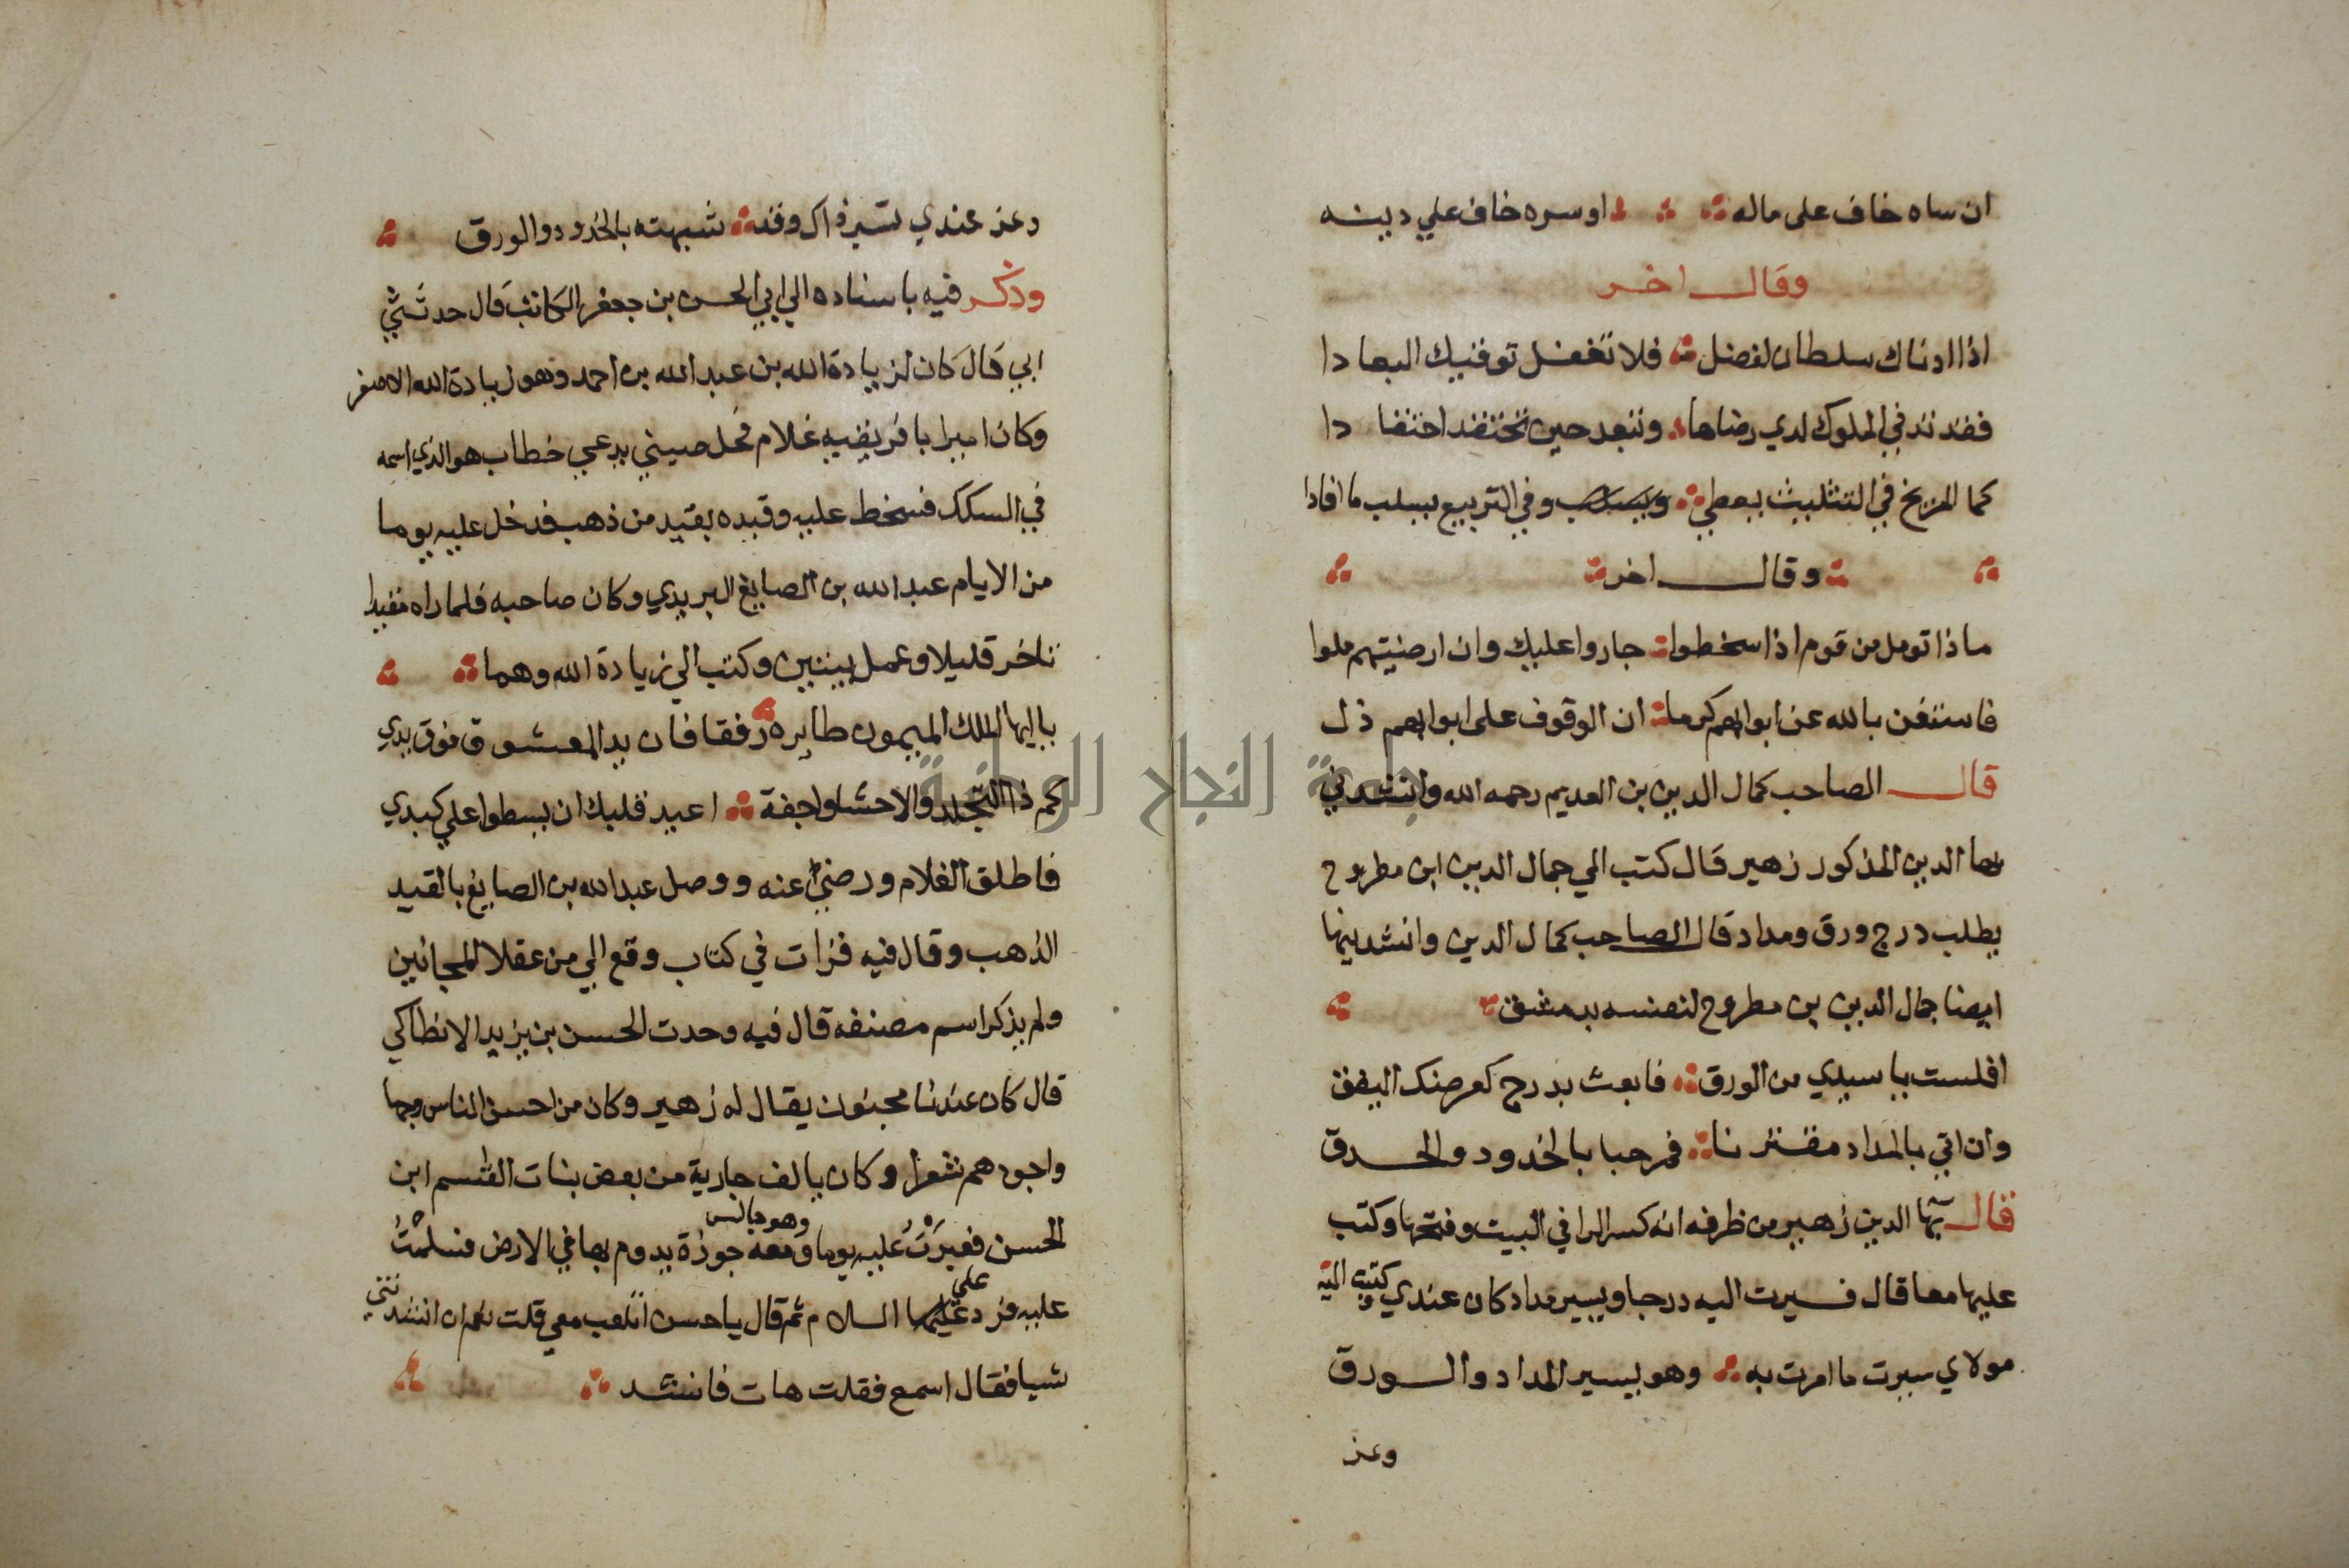 ان ساه خاف على ماله او سره خاف علي دينه
وقال اخر
اذا ادناك سلطان لفضل فلا تغفل توفيك البعادا
فقد تدني الملوك لدي رضاها وتبعد حين تحتقد احتقادا
كما المريخ في التثليث يعطي وفي التربيع يسلب ما افادا
وقال اخر
ماذا تومل من قوم اذا سخطوا جاروا عليك وان ارضيتهم ملوا
فاستغن بالله عن ابوابهم كرما ان الوقوف على ابوابهم ذل
قال الصاحب كمال الدين بن العديم رحمه الله وانشدني
بها الدين المذكور زهير قال كتب الي جمال الدين ابن مطروح
يطلب درج ورق ومداد قال الصاحب كمال الدين وانشدنيها
ايضا جمال الدين بن مطروح لنفسه بدمشق
افلست يا سيدي من الورق فابعث بدرج كعرضك اليقق
وان اتي بالمداد مقترنا فمرحبا بالخدود والحدق
قال بها الدين زهير من ظرفه انه كسر الرا في البيت وفتحها وكتب
عليها معا قال فسيرت اليه درجا ويسير مداد كان عندي وكتبت اليه
مولاي سيرت ما امرت به وهو يسير المداد والورق
وعز
وعز عندي تسير ذاك وقد شبهته بالخدود والورق
وذكر فيه باسناده الي ابي الحسن بن جعفر الكاتب قال حدثني
ابي قال كان لزيادة الله بن عبد الله بن احمد وهو زيادة الله الاصغر
وكان اميرا بافريقيه غلام فحل صيني يدعي خطاب هو الذي اسمه
في السكك فسخط عليه وقيده بقيد من ذهب فدخل عليه يوما
من الايام عبد الله بن الصايغ البريدي وكان صاحبه فلما راه مقيدا
تاخر قليلا وعمل بيتين وكتب الي زيادة الله وهما
يا ايها الملك الميمون طايره رفقا فان يد المعشوق فوق يدي
كم ذا التجلد والاحشا واجفة اعيذ قلبك ان يسطوا علي كبدي
فاطلق الغلام ورضي عنه ووصل عبد الله بن الصايغ بالقيد
الذهب وقال فيه قرات في كتاب وقع الي من عقلا المجانين
ولم يذكر اسم مصنفه قال فيه وحدت الحسن بن يزيد الانطاكي
قال كان عندنا مجنون يقال له زهير وكان من احسن الناس وجها
واجودهم شعرا وكان يالف جارية من بعض بنات القسم ابن
الحسن فعبرت عليه يوما وهو جالس ومعه جوزة يدوم بها في الارض فسلمت
عليه فرد علي السلام ثم قال يا حسن اتلعب معي قلت نعم ان انشدتني
شيا فقال اسمع فقلت هات فانشد
جامعة النجاح الوطنية